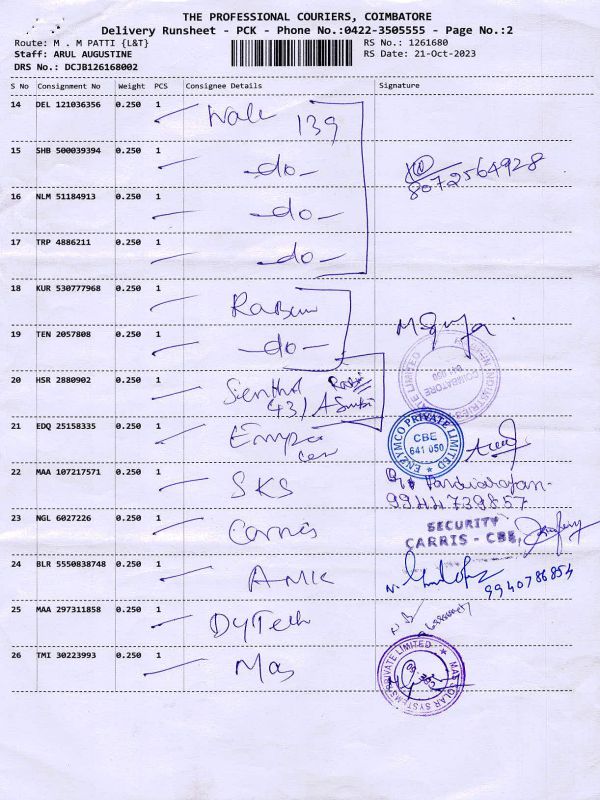 THE PROFESSIONAL COURIERS, COIMBATORE
Delivery Runsheet - PCK - Phone No.:0422-3505555 - Page No.:2
Route: M . M PATTI {L&T}
RS No.: 1261680
Staff: ARUL AUGUSTINE
RS Date: 21-Oct-2023
DRS No.: DCJB126168002
S No Consignment No Weight PCS Consignee Details Signature
14 DEL 121036356 0.250 1 139
15 SHB 500039394 0.250 1 -do- 8072564928
16 NLM 51184913 0.250 1 -do-
17 TRP 4886211 0.250 1 -do-
18 KUR 530777968 0.250 1
19 TEN 2057808 0.250 1 -do-
20 HSR 2880902 0.250 1
21 EDQ 25158335 0.250 1
ENZYMCO PRIVATE LIMITED
CBE
641 050
22 MAA 107217571 0.250 1 SKS
9944739857
23 NGL 6027226 0.250 1 Carris
SECURITY
CARRIS - CBE
24 BLR 5550838748 0.250 1 9940786854
25 MAA 297311858 0.250 1 DyTech
26 TMI 30223993 0.250 1 Mas
MAS SOLAR SYSTEMS PRIVATE LIMITED